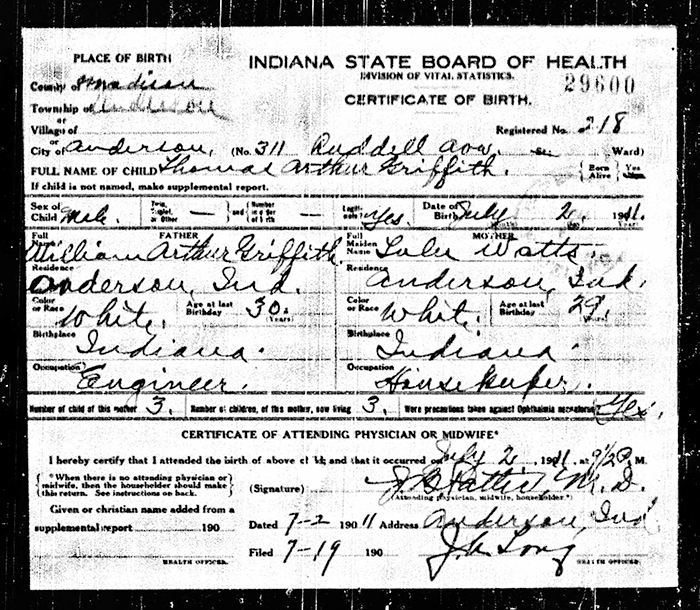 PLACE OF BIRTH
INDIANA STATE BOARD OF HEALTH
DIVISION OF VITAL STATISTICS.
29600
CERTIFICATE OF BIRTH.
County of Madison
Township of Anderson
or
Village of
or
City of Anderson, (No. 311 Ruddell ave. St. Ward)
Registered No. 218
FULL NAME OF CHILD Thomas Arthur Griffith. { Born Alive } Yes
If child is not named, make supplemental report.
Sex of Child Male. Twin, Triplet, or Other — and Number in order of birth — Legitimate? Yes. Date of Birth July 2, 1911.
FATHER
Full Name William Arthur Griffith.
MOTHER
Full Maiden Name Lulu Watts.
Residence Anderson, Ind.
Residence Anderson, Ind.
Color or Race White. Age at last Birthday 30. (Years)
Color or Race White. Age at last Birthday 29. (Years)
Birthplace Indiana.
Birthplace Indiana.
Occupation Engineer.
Occupation Housekeeper.
Number of child of this mother 3. Number of children, of this mother, now living 3. Were precautions taken against Ophthalmia neonatorum Yes.
CERTIFICATE OF ATTENDING PHYSICIAN OR MIDWIFE*
I hereby certify that I attended the birth of above child; and that it occurred on July 2, 1911, at M.
{ * When there is no attending physician or midwife, then the householder should make this return. See instructions on back. }
(Signature) M.D.
(Attending physician, midwife, householder.*)
Given or christian name added from a
supplemental report 190
Dated 7-2 190 11 Address Anderson, Ind
Filed 7-19 190 J.A. Long
HEALTH OFFICER.
HEALTH OFFICER.